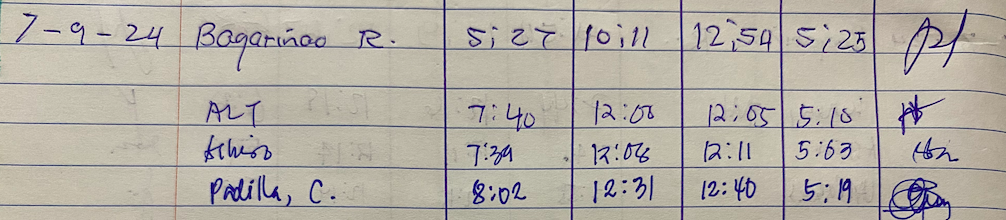 7-9-24 Bagariñao R. 5:27 10:11 12:54 5:25
ALT 7:40 12:00 12:05 5:10
7:39 12:08 12:11 5:03
Padilla, C. 8:02 12:31 12:40 5:19